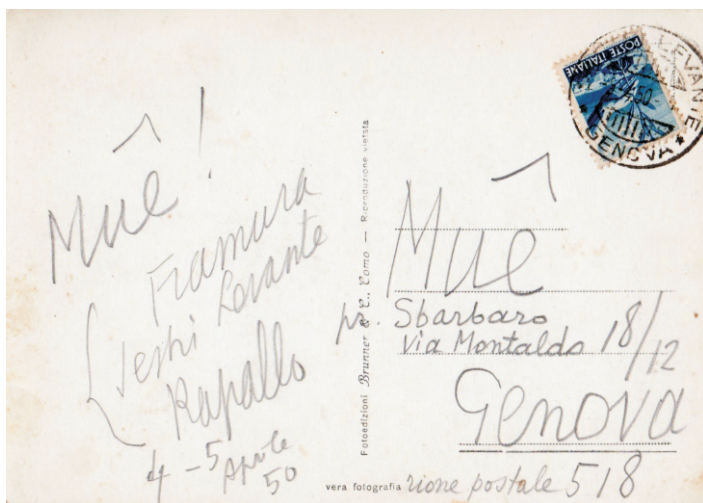 Muê!
Framura
Sestri Levante
Rapallo
4-5 Aprile
50
Fotoedizioni Brunner & C., Como — Riproduzione vietata
vera fotografia
POSTE ITALIANE
LEVANTE
GENOVA
Muê
pr. Sbarbaro
Via Montaldo 18/12
Genova
rione postale 518